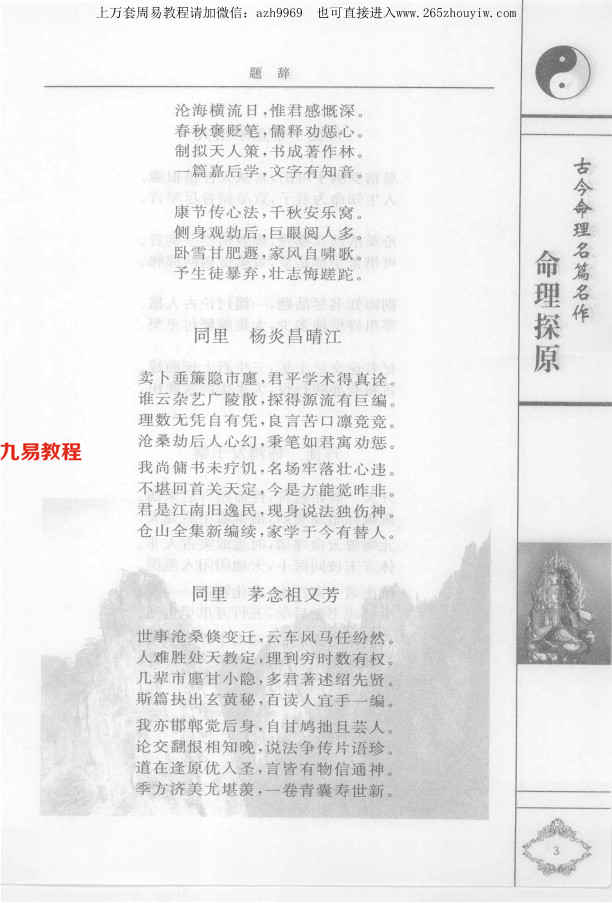 上万套周易教程请加微信：azh9969 也可直接进入www.265zhouyiw.com
题 辞
沧海横流日，惟君感慨深。
春秋褒贬笔，儒释劝惩心。
制拟天人策，书成著作林。
一篇嘉后学，文字有知音。
康节传心法，千秋安乐窝。
侧身观劫后，巨眼阅人多。
卧雪甘肥遯，家风自啸歌。
予生徒暴弃，壮志悔蹉跎。
同里 杨炎昌晴江
卖卜垂簾隐市廛，君平学术得真诠。
谁云杂艺广陵散，探得源流有巨编。
理数无凭自有凭，良言苦口凛兢兢。
沧桑劫后人心幻，秉笔如君寓劝惩。
我尚傭书未疗饥，名场牢落壮心违。
不堪回首关天定，今是方能觉昨非。
君是江南旧逸民，现身说法独伤神。
仓山全集新编续，家学于今有替人。
同里 茅念祖又芳
世事沧桑倏变迁，云车风马任纷然。
人难胜处天教定，理到穷时数有权。
几辈市廛甘小隐，多君著述绍先贤。
斯篇抉出玄黄秘，百读人宜手一编。
我亦邯郸觉后身，自甘鸠拙且芸人。
论交翻恨相知晚，说法争传片语珍。
道在逢原优入圣，言皆有物信通神。
季方济美尤堪羡，一卷青囊寿世新。
古今命理名篇名作
命理探原
九易教程
3